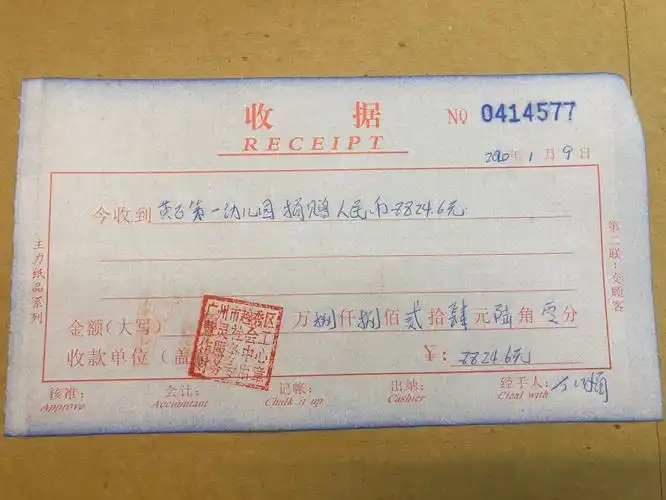 收 据
RECEIPT
NO 0414577
2020年 1 月 9 日
今收到 黄石第一幼儿园 捐赠人民币8824.6元
金额(大写) 万捌仟捌佰贰拾肆元陆角零分
收款单位(盖 ¥: 8824.6元
核准: 会计: 记帐: 出纳: 经手人:
Approve Accountant Chalk it up Cashier Cleal with
主力纸品系列
第二联:交顾客
广州市越秀区
社会工
作服务中心
财务专用章